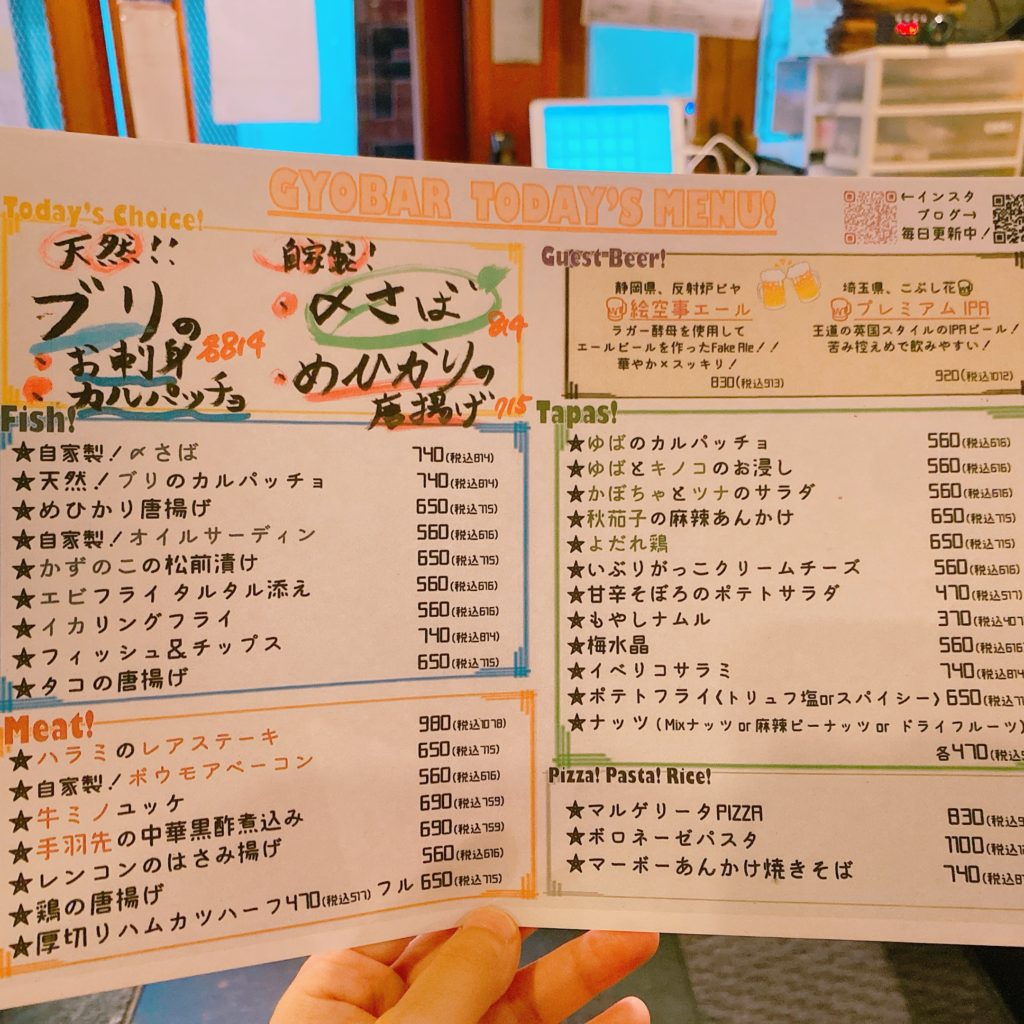 GYOBAR TODAY'S MENU!
←インスタ
ブログ→
毎日更新中!
Today's Choice!
天然!!
ブリの
・お刺身
・カルパッチョ
各814
自家製!
・〆さば
814
・めひかりの
唐揚げ
715
Guest Beer!
静岡県、反射炉ビヤ
絵空事エール
ラガー酵母を使用して
エールビールを作ったFake Ale!!
華やか×スッキリ!
830(税込913)
埼玉県、こぶし花
プレミアムIPA
王道の英国スタイルのIPAビール!
苦み控えめで飲みやすい!
920(税込1012)
Fish!
★自家製!〆さば 740(税込814)
★天然!ブリのカルパッチョ 740(税込814)
★めひかり唐揚げ 650(税込715)
★自家製!オイルサーディン 560(税込616)
★かずのこの松前漬け 650(税込715)
★エビフライ タルタル添え 560(税込616)
★イカリングフライ 560(税込616)
★フィッシュ&チップス 740(税込814)
★タコの唐揚げ 650(税込715)
Meat!
★ハラミのレアステーキ 980(税込1078)
★自家製!ボウモアベーコン 650(税込715)
★牛ミノユッケ 560(税込616)
★手羽先の中華黒酢煮込み 690(税込759)
★レンコンのはさみ揚げ 690(税込759)
★鶏の唐揚げ 560(税込616)
★厚切りハムカツハーフ470(税込517) フル650(税込715)
Tapas!
★ゆばのカルパッチョ 560(税込616)
★ゆばとキノコのお浸し 560(税込616)
★かぼちゃとツナのサラダ 560(税込616)
★秋茄子の麻辣あんかけ 650(税込715)
★よだれ鶏 650(税込715)
★いぶりがっこクリームチーズ 560(税込616)
★甘辛そぼろのポテトサラダ 470(税込517)
★もやしナムル 370(税込407
★梅水晶 560(税込616
★イベリコサラミ 740(税込814
★ポテトフライ(トリュフ塩orスパイシー) 650(税込
★ナッツ(Mixナッツ or 麻辣ピーナッツ or ドライフルーツ)
各470(税込
Pizza! Pasta! Rice!
★マルゲリータPIZZA 830(税込
★ボロネーゼパスタ 1100(税込
★マーボーあんかけ焼きそば 740(税込